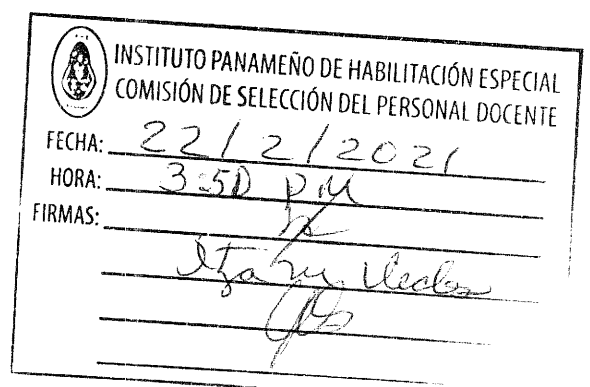 INSTITUTO PANAMEÑO DE HABILITACIÓN ESPECIAL
COMISIÓN DE SELECCIÓN DEL PERSONAL DOCENTE
FECHA: 22/2/2021
HORA: 3:50 PM
FIRMAS: